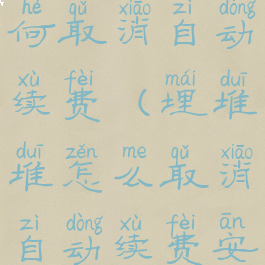 hé qǔ xiāo zì dòng
何取消自动
xù fèi mái duī
续费（埋堆
duī zěn me qǔ xiāo
堆怎么取消
zì dòng xù fèi ān
自动续费安